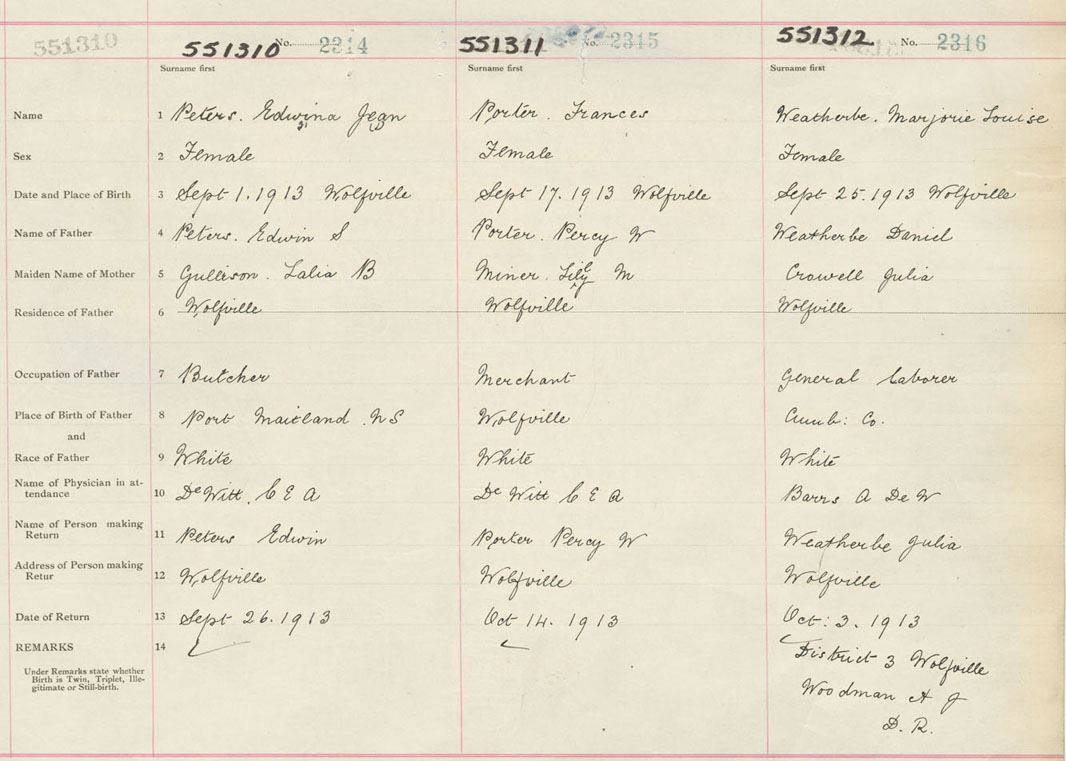 551310 551310 No. 2314 551311 No. 2315 551312 No. 2316
Surname first Surname first Surname first
Name 1 Peters. Edwina Jean Porter. Frances Weatherbe. Marjorie Louise
Sex 2 Female Female Female
Date and Place of Birth 3 Sept 1. 1913 Wolfville Sept 17. 1913 Wolfville Sept 25. 1913 Wolfville
Name of Father 4 Peters. Edwin S Porter. Percy W Weatherbe Daniel
Maiden Name of Mother 5 Gullison. Lalia B Miner. Lily M Crowell Julia
Residence of Father 6 Wolfville Wolfville Wolfville
Occupation of Father 7 Butcher Merchant General Laborer
Place of Birth of Father 8 Port Maitland. NS Wolfville Cumb: Co.
and
Race of Father 9 White White White
Name of Physician in at-
tendance 10 DeWitt. C E A DeWitt C E A Barrs A De W
Name of Person making
Return 11 Peters Edwin Porter Percy W Weatherbe Julia
Address of Person making
Retur 12 Wolfville Wolfville Wolfville
Date of Return 13 Sept 26. 1913 Oct 14. 1913 Oct: 3. 1913
REMARKS 14 District 3 Wolfville
Under Remarks state whether
Birth is Twin, Triplet, Ille-
gitimate or Still-birth.
Woodman A J
D. R.